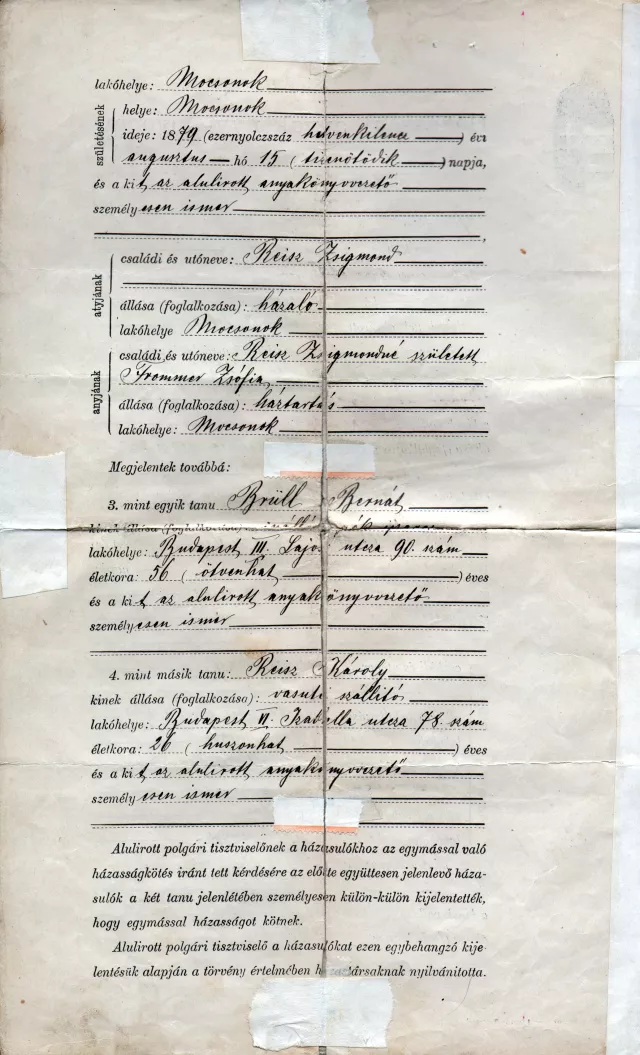 lakóhelye: Mocsonok
születésének
helye: Mocsonok
ideje: 1879 (ezernyolczszáz hetvenkilencz) évi
augusztus hó 15 (tizenötödik) napja,
és a kit az alulirott anyakönyvvezető
személyesen ismer
atyjának
családi és utóneve: Reisz Zsigmond
állása (foglalkozása): házaló
lakóhelye Mocsonok
anyjának
családi és utóneve: Reisz Zsigmondné született
Frommer Zsófia
állása (foglalkozása): háztartás
lakóhelye: Mocsonok
Megjelentek továbbá:
3. mint egyik tanu Brüll Bernát
kinek állása (foglalkozása)
lakóhelye: Budapest III. Lajos utcza 90. szám
életkora: 56 (ötvenhat) éves
és a kit az alulirott anyakönyvvezető
személyesen ismer
4. mint másik tanu: Reisz Károly
kinek állása (foglalkozása): vasuti szállító
lakóhelye: Budapest VI. Izabella utcza 78. szám
életkora: 26 (huszonhat) éves
és a kit az alulirott anyakönyvvezető
személyesen ismer
Alulirott polgári tisztviselőnek a házasulókhoz az egymással való
házasságkötés iránt tett kérdésére az előtte együttesen jelenlevő háza-
sulók a két tanu jelenlétében személyesen külön-külön kijelentették,
hogy egymással házasságot kötnek.
Alulirott polgári tisztviselő a házasulókat ezen egybehangzó kije-
lentésük alapján a törvény értelmében házastársaknak nyilvánitotta.